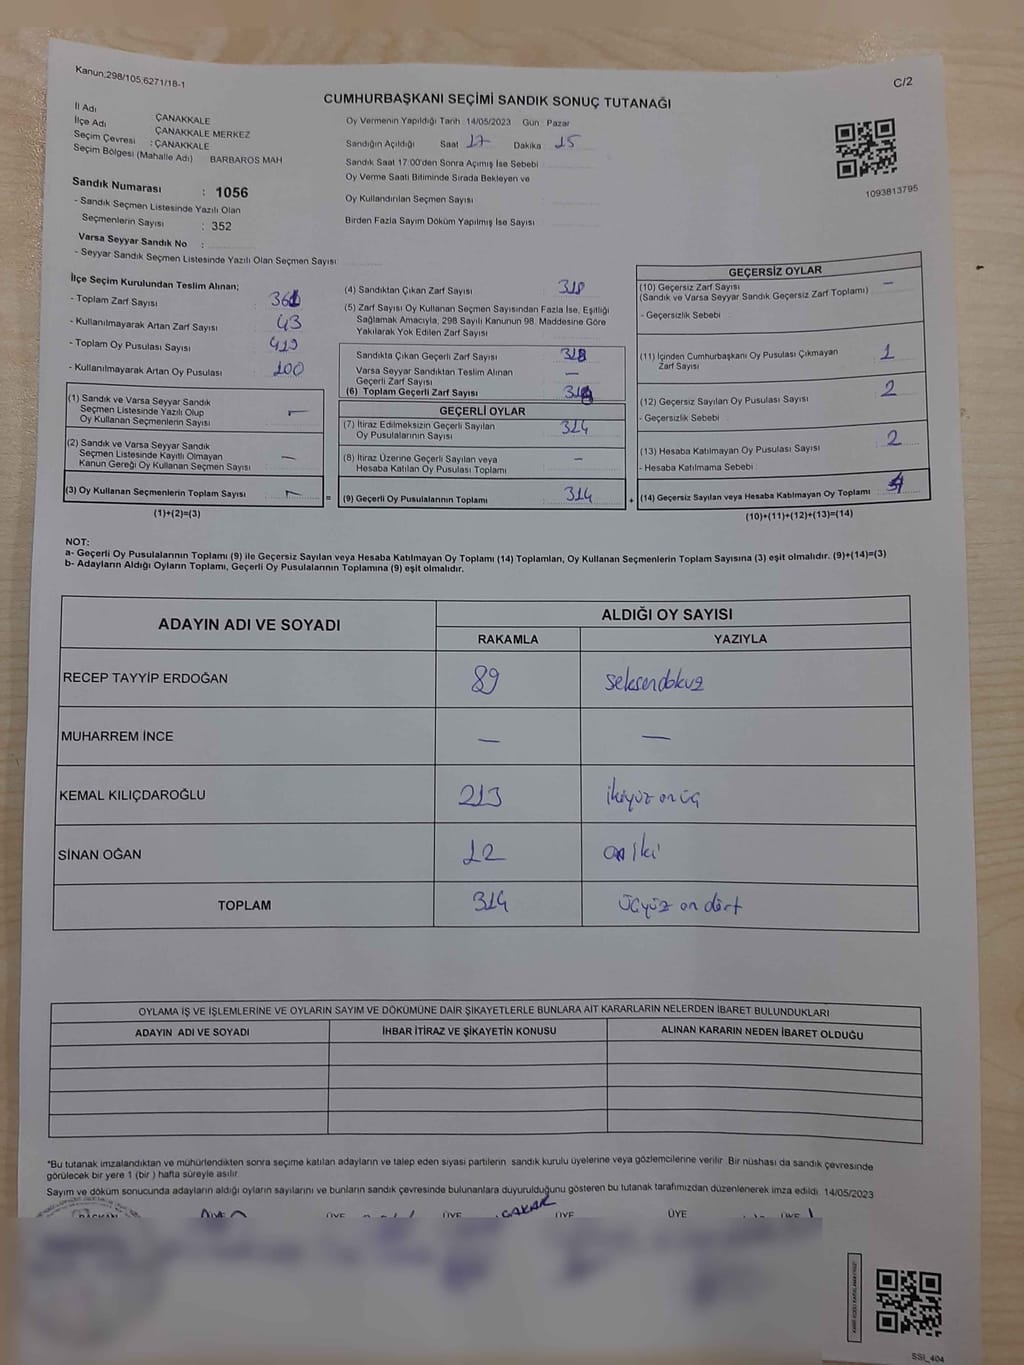 Kanun:298/105,6271/18-1
C/2
CUMHURBAŞKANI SEÇİMİ SANDIK SONUÇ TUTANAĞI
İl Adı ÇANAKKALE
İlçe Adı ÇANAKKALE MERKEZ
Seçim Çevresi : ÇANAKKALE
Seçim Bölgesi (Mahalle Adı) BARBAROS MAH
Sandık Numarası : 1056
- Sandık Seçmen Listesinde Yazılı Olan
Seçmenlerin Sayısı : 352
Varsa Seyyar Sandık No :
- Seyyar Sandık Seçmen Listesinde Yazılı Olan Seçmen Sayısı
Oy Vermenin Yapıldığı Tarih 14/05/2023 Gün : Pazar
Sandığın Açıldığı Saat 17 Dakika 15
Sandık Saat 17:00'den Sonra Açmış İse Sebebi
Oy Verme Saati Bitiminde Sırada Bekleyen ve
Oy Kullandırılan Seçmen Sayısı
Birden Fazla Sayım Döküm Yapılmış İse Sayısı
1093813795
İlçe Seçim Kurulundan Teslim Alınan;
- Toplam Zarf Sayısı 361
- Kullanılmayarak Artan Zarf Sayısı 43
- Toplam Oy Pusulası Sayısı 419
- Kullanılmayarak Artan Oy Pusulası 100
(1) Sandık ve Varsa Seyyar Sandık
Seçmen Listesinde Yazılı Olup
Oy Kullanan Seçmenlerin Sayısı —
(2) Sandık ve Varsa Seyyar Sandık
Seçmen Listesinde Kayıtlı Olmayan
Kanun Gereği Oy Kullanan Seçmen Sayısı —
(3) Oy Kullanan Seçmenlerin Toplam Sayısı : —
(1)+(2)=(3)
=
(4) Sandıktan Çıkan Zarf Sayısı 318
(5) Zarf Sayısı Oy Kullanan Seçmen Sayısından Fazla İse, Eşitliği
Sağlamak Amacıyla, 298 Sayılı Kanunun 98. Maddesine Göre
Yakılarak Yok Edilen Zarf Sayısı
Sandıkta Çıkan Geçerli Zarf Sayısı 318
Varsa Seyyar Sandıktan Teslim Alınan
Geçerli Zarf Sayısı —
(6) Toplam Geçerli Zarf Sayısı
GEÇERLİ OYLAR
(7) İtiraz Edilmeksizin Geçerli Sayılan
Oy Pusulalarının Sayısı 314
(8) İtiraz Üzerine Geçerli Sayılan veya
Hesaba Katılan Oy Pusulası Toplamı —
(9) Geçerli Oy Pusulalarının Toplamı 314
+
GEÇERSİZ OYLAR
(10) Geçersiz Zarf Sayısı —
(Sandık ve Varsa Seyyar Sandık Geçersiz Zarf Toplamı)
- Geçersizlik Sebebi
(11) İçinden Cumhurbaşkanı Oy Pusulası Çıkmayan
Zarf Sayısı 1
(12) Geçersiz Sayılan Oy Pusulası Sayısı 2
- Geçersizlik Sebebi
(13) Hesaba Katılmayan Oy Pusulası 2
- Hesaba Katılmama Sebebi
(14) Geçersiz Sayılan veya Hesaba Katılmayan Oy Toplamı
(10)+(11)+(12)+(13)=(14)
NOT:
a- Geçerli Oy Pusulalarının Toplamı (9) ile Geçersiz Sayılan veya Hesaba Katılmayan Oy Toplamı (14) Toplamları, Oy Kullanan Seçmenlerin Toplam Sayısına (3) eşit olmalıdır. (9)+(14)=(3)
b- Adayların Aldığı Oyların Toplamı, Geçerli Oy Pusulalarının Toplamına (9) eşit olmalıdır.
ADAYIN ADI VE SOYADI
ALDIĞI OY SAYISI
RAKAMLA YAZIYLA
RECEP TAYYİP ERDOĞAN 89 seksendokuz
MUHARREM İNCE — —
KEMAL KILIÇDAROĞLU 213 ikiyüz onüç
SİNAN OĞAN 12 on iki
TOPLAM 314 üçyüz on dört
OYLAMA İŞ VE İŞLEMLERİNE VE OYLARIN SAYIM VE DÖKÜMÜNE DAİR ŞİKAYETLERLE BUNLARA AİT KARARLARIN NELERDEN İBARET BULUNDUKLARI
ADAYIN ADI VE SOYADI İHBAR İTİRAZ VE ŞİKAYETİN KONUSU ALINAN KARARIN NEDEN İBARET OLDUĞU
*Bu tutanak imzalandıktan ve mühürlendikten sonra seçime katılan adayların ve talep eden siyasi partilerin sandık kurulu üyelerine veya gözlemcilerine verilir. Bir nüshası da sandık çevresinde
görülecek bir yere 1 (bir ) hafta süreyle asılır.
Sayım ve döküm sonucunda adayların aldığı oyların sayılarını ve bunların sandık çevresinde bulunanlara duyurulduğunu gösteren bu tutanak tarafımızdan düzenlenerek imza edildi. 14/05/2023
BAŞKAN ÜYE ÜYE ÜYE ÜYE ÜYE
SSI_404